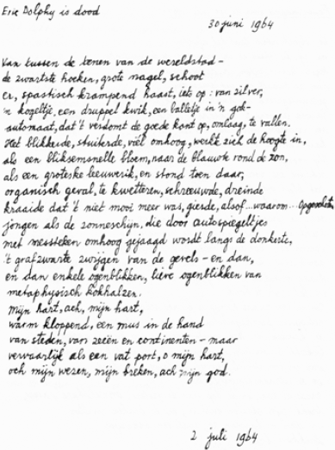 Eric Dolphy is dood
30 juni 1964
Van tussen de tenen van de wereldstad –
de zwartste hoeken, grote nagel, schoot
er, spastisch krampend haast, iets op: van zilver,
'n kogeltje, een druppel kwik, een balletje in 'n gok-
automaat, dat 't verdomt de goede kant op, omlaag, te vallen.
Het blikkerde, stuiterde, viel omhoog, welk ziek de hoogte in,
als een bliksemsnelle bloem, naar de blauwte rond de zon,
als een groteske leeuwerik, en stond toen daar,
organisch geval, te kwetteren, schreeuwde, dreinde
kraaide dat 't niet mooi meer was, gierde, alsof.. waarom... Opgesloten
jongen als de zonneschijn, die door autospiegeltjes
met messteken omhoog gejaagd wordt langs de donkerte,
't grafzwarte zwijgen van de gevels – en dan,
en dan enkele ogenblikken, lieve ogenblikken van
metaphysisch kokhalzen.
Mijn hart, ach, mijn hart,
warm kloppend, een mus in de hand
van steden, van zeeën en continenten – maar
vervaarlijk als een vat port, o mijn hart,
och mijn wezen, mijn breken, ach mijn god.
2 juli 1964